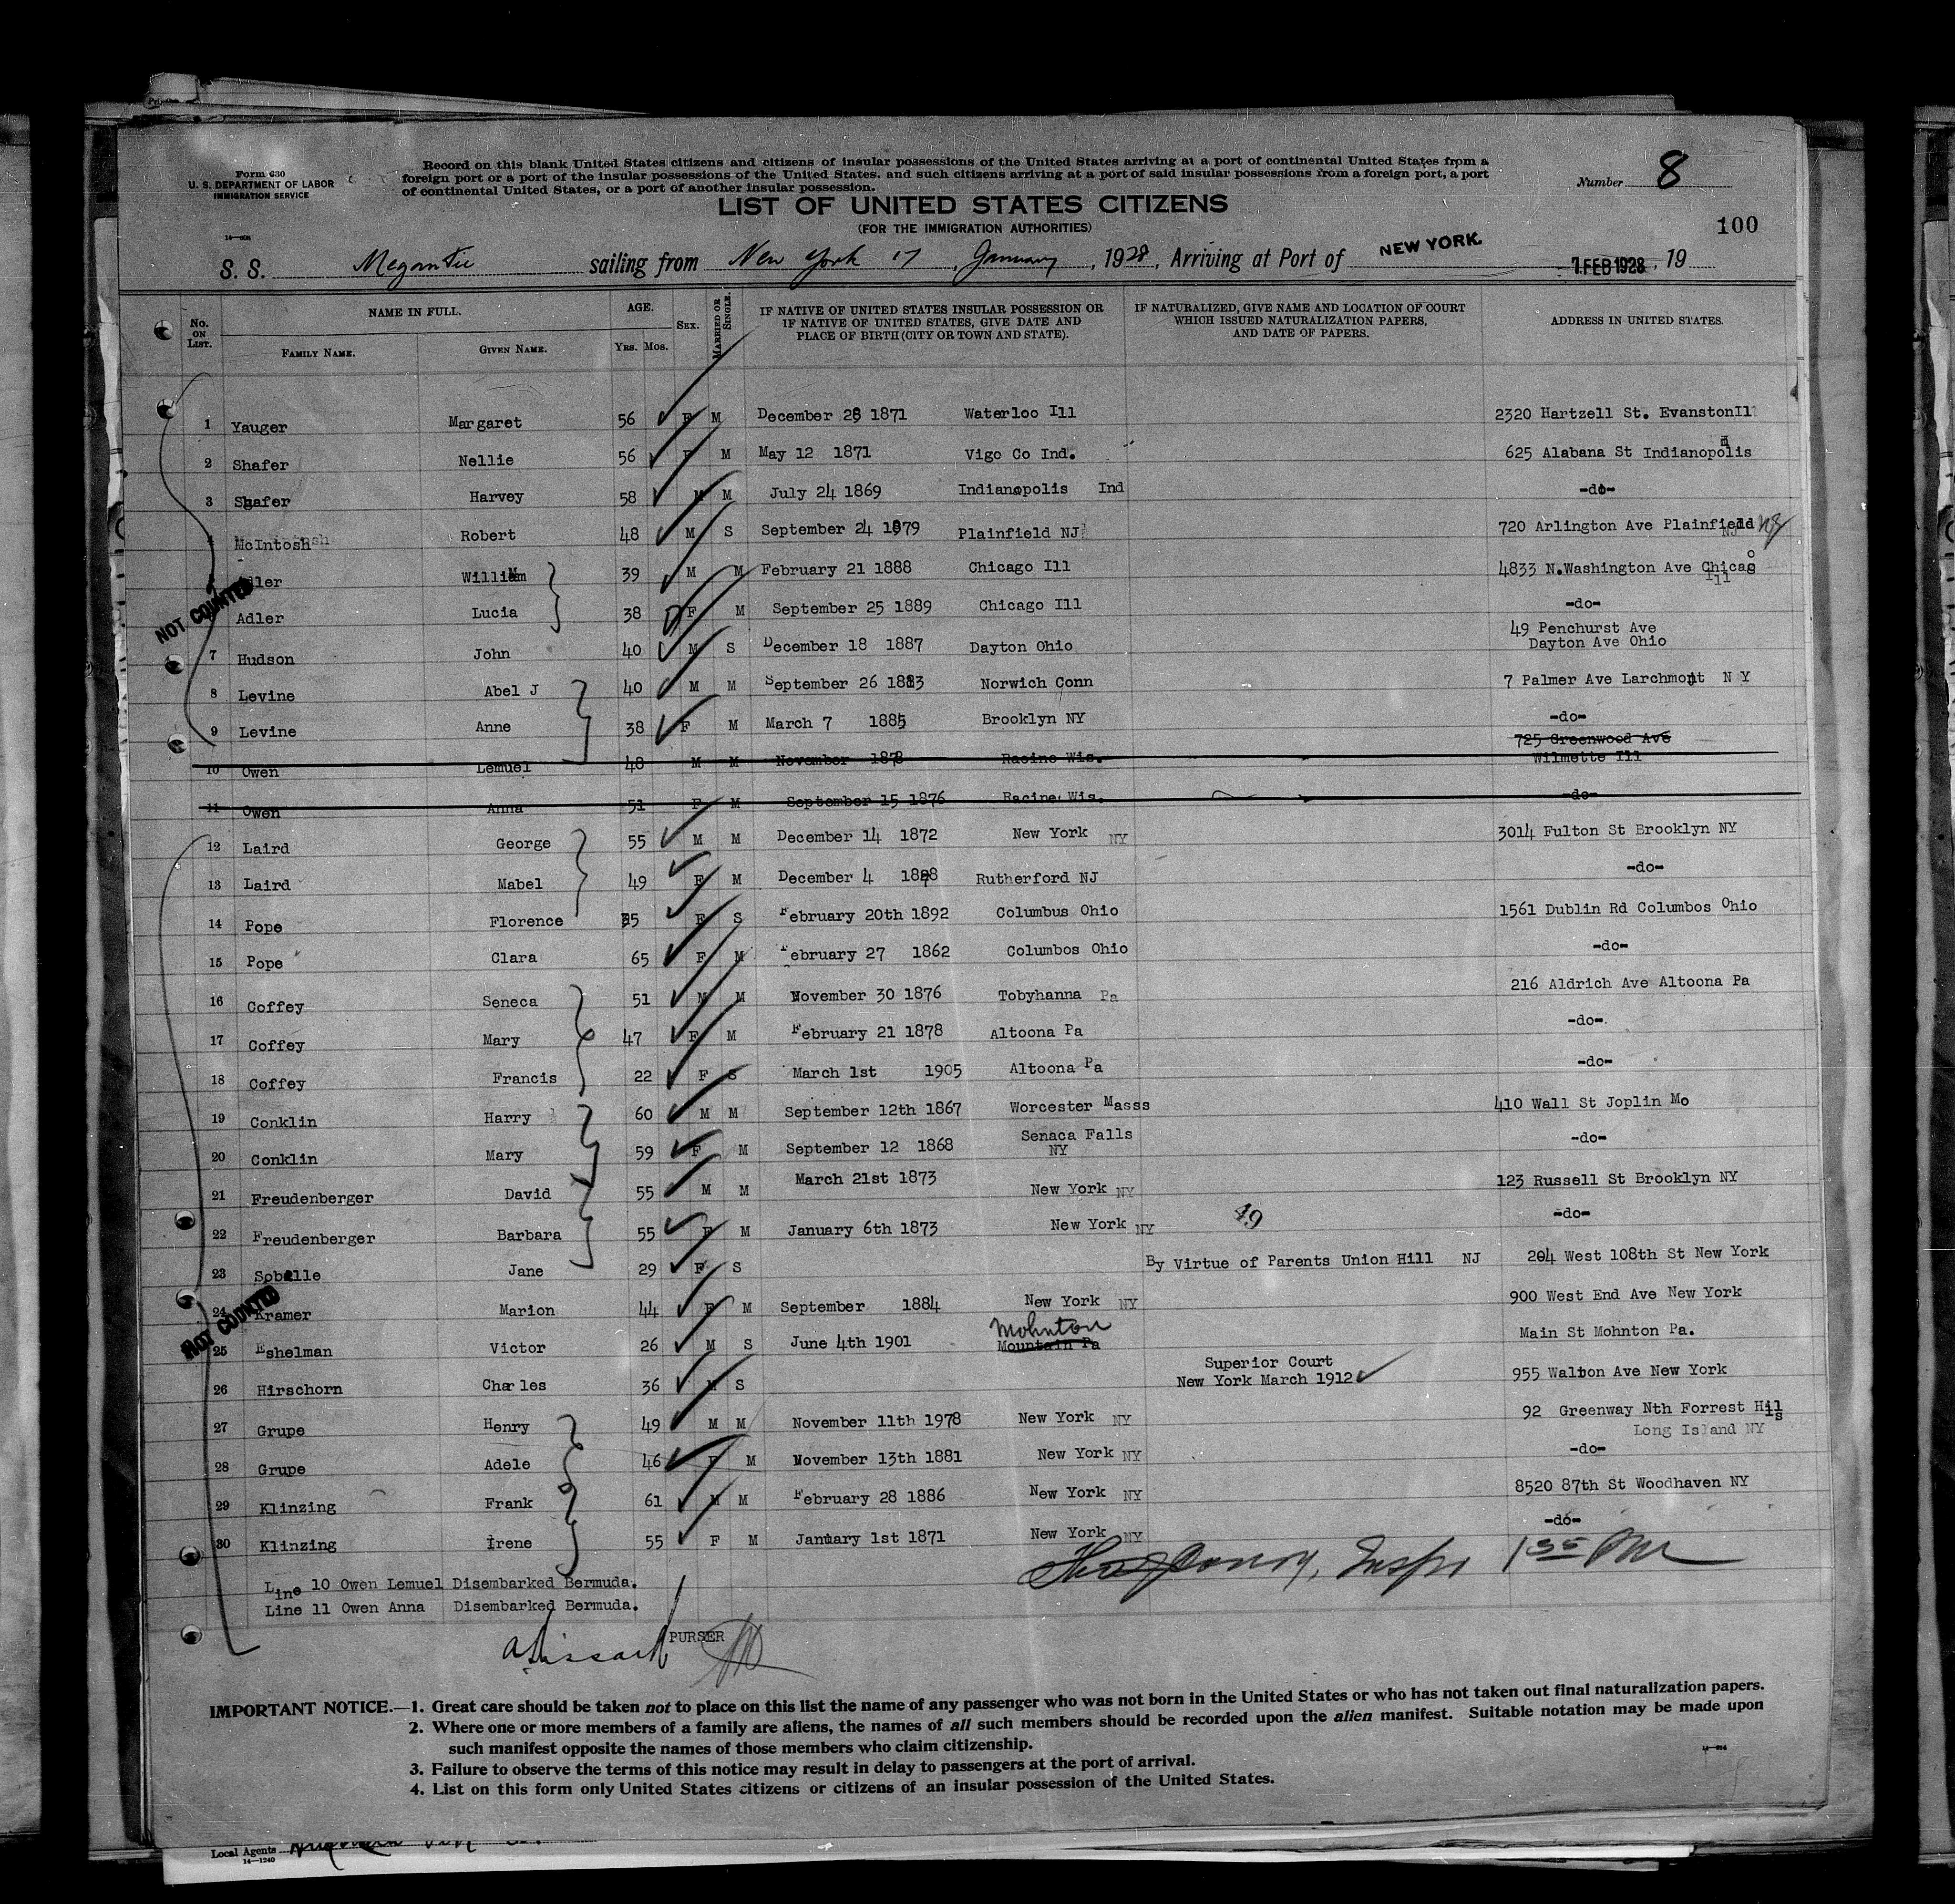 Form 630
U. S. DEPARTMENT OF LABOR
IMMIGRATION SERVICE
14—208
Record on this blank United States citizens and citizens of insular possessions of the United States arriving at a port of continental United States from a
foreign port or a port of the insular possessions of the United States. and such citizens arriving at a port of said insular possessions from a foreign port, a port
of continental United States, or a port of another insular possession.
Number 8
LIST OF UNITED STATES CITIZENS
(FOR THE IMMIGRATION AUTHORITIES)
100
S. S. Megantic sailing from New York 17, January, 1928, Arriving at Port of NEW YORK. 7.FEB 1928, 19
No. ON LIST. NAME IN FULL. AGE. SEX. MARRIED OR SINGLE. IF NATIVE OF UNITED STATES INSULAR POSSESSION OR IF NATIVE OF UNITED STATES, GIVE DATE AND PLACE OF BIRTH (CITY OR TOWN AND STATE). IF NATURALIZED, GIVE NAME AND LOCATION OF COURT WHICH ISSUED NATURALIZATION PAPERS, AND DATE OF PAPERS. ADDRESS IN UNITED STATES.
FAMILY NAME. GIVEN NAME. YRS. MOS.
1 Yauger Margaret 56 F M December 28 1871 Waterloo Ill 2320 Hartzell St. EvanstonIll
2 Shafer Nellie 56 F M May 12 1871 Vigo Co Ind. 625 Alabana St Indianopolis
3 Shafer Harvey 58 M M July 24 1869 Indianopolis Ind -do-
McIntosh Robert 48 M S September 24 1879 Plainfield NJ 720 Arlington Ave Plainfield NJ
Adler William 39 M M February 21 1888 Chicago Ill 4833 N.Washington Ave Chicago Ill
NOT COUNTED
Adler Lucia 38 F M September 25 1889 Chicago Ill -do-
7 Hudson John 40 M S December 18 1887 Dayton Ohio 49 Penchurst Ave Dayton Ave Ohio
8 Levine Abel J 40 M M September 26 1883 Norwich Conn 7 Palmer Ave Larchmont N Y
9 Levine Anne 38 F M March 7 1885 Brooklyn NY -do-
10 Owen Lemuel 48 M M November 1878 Racine Wis. 725 Greenwood Ave Wilmette Ill
11 Owen Anna 51 F M September 15 1876 Racine Wis. -do-
12 Laird George 55 M M December 14 1872 New York NY 3014 Fulton St Brooklyn NY
13 Laird Mabel 49 F M December 4 1878 Rutherford NJ -do-
14 Pope Florence 35 F S February 20th 1892 Columbus Ohio 1561 Dublin Rd Columbos Ohio
15 Pope Clara 65 F M February 27 1862 Columbos Ohio -do-
16 Coffey Seneca 51 M M November 30 1876 Tobyhanna Pa 216 Aldrich Ave Altoona Pa
17 Coffey Mary 47 F M February 21 1878 Altoona Pa -do-
18 Coffey Francis 22 F S March 1st 1905 Altoona Pa -do-
19 Conklin Harry 60 M M September 12th 1867 Worcester Masss 410 Wall St Joplin Mo
20 Conklin Mary 59 F M September 12 1868 Senaca Falls NY -do-
21 Freudenberger David 55 M M March 21st 1873 New York NY 123 Russell St Brooklyn NY
22 Freudenberger Barbara 55 F M January 6th 1873 New York NY 49 -do-
23 Sobelle Jane 29 F S By Virtue of Parents Union Hill NJ 204 West 108th St New York
24 Kramer Marion 44 F M September 1884 New York NY 900 West End Ave New York
NOT COUNTED
25 Eshelman Victor 26 M S June 4th 1901 Mohnton Mountain Pa Main St Mohnton Pa.
26 Hirschorn Charles 36 M S Superior Court New York March 1912 955 Walton Ave New York
27 Grupe Henry 49 M M November 11th 1978 New York NY 92 Greenway Nth Forrest Hils Long Island NY
28 Grupe Adele 46 F M November 13th 1881 New York NY -do-
29 Klinzing Frank 61 M M February 28 1886 New York NY 8520 87th St Woodhaven NY
30 Klinzing Irene 55 F M January 1st 1871 New York NY -do-
Line 10 Owen Lemuel Disembarked Bermuda.
Line 11 Owen Anna Disembarked Bermuda.
PURSER
IMPORTANT NOTICE.—1. Great care should be taken not to place on this list the name of any passenger who was not born in the United States or who has not taken out final naturalization papers.
2. Where one or more members of a family are aliens, the names of all such members should be recorded upon the alien manifest. Suitable notation may be made upon
such manifest opposite the names of those members who claim citizenship.
3. Failure to observe the terms of this notice may result in delay to passengers at the port of arrival.
4. List on this form only United States citizens or citizens of an insular possession of the United States.
Local Agents
14—1240